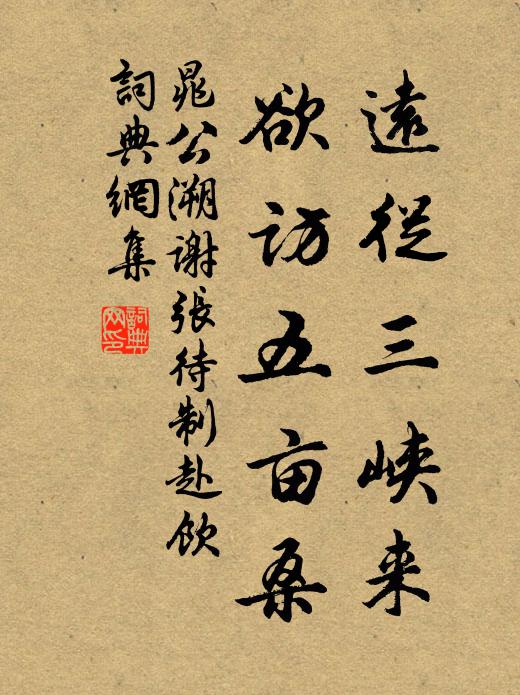 遠從三峽来
欲访五亩桑
晁公溯谢張待制赴飲
詞典網集
詞典網印